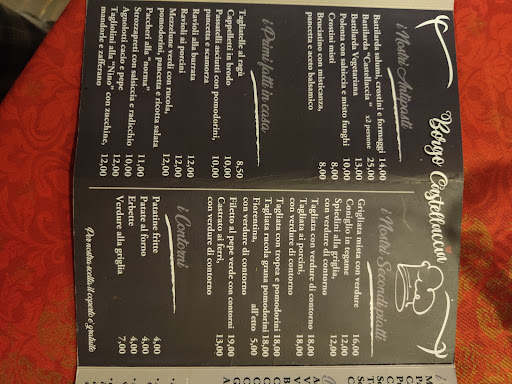 Borgo Castelluccio
i Nostri Antipasti
Bastilarda salumi, crostini e formaggi 14,00
Bastilarda "Castelluccia" x2 persone 25,00
Bastilarda Vegetariana 13,00
Polenta con salsiccia e misto funghi 10,00
Crostini misti 8,00
Brusciatino con misticanza, 8,00
pancetta e aceto balsamico
i Primi fatti in casa
Tagliatelle al ragù 8,50
Cappelletti in brodo 10,00
Passatelli asciutti con pomodorini, 10,00
pancetta e scamorza
Ravioli alla burrata 12,00
Ravioli ai porcini 12,00
Mezzelune verdi con rucola,
pomodorini, pancetta e ricotta salata 12,00
Paccheri alla "norma" 11,00
Strozzapreti con salsiccia e radicchio 10,00
Agnolotti cacio e pepe 12,00
Tagliolini alla "Nino" con zucchine, 12,00
mandorle e zafferano
i Nostri Secondi piatti
Grigliata mista con verdure 16,00
Coniglio in tegame 12,00
Spiedini alla griglia, 12,00
con verdure di contorno
Tagliata con verdure di contorno 18,00
Tagliata ai porcini, 18,00
con verdure di contorno
Tagliata con tropea e pomodorini 18,00
Tagliata rucola grana pomodorini 18,00
Fiorentina, all'etto 5,00
con verdure di contorno
Filetto al pepe verde con contorni 19,00
Castrato ai ferri, 13,00
con verdure di contorno
i Contorni
Patatine fritte 4,00
Patate al forno 4,00
Erbette 4,00
Verdure alla griglia 7,00
Per nostra scelta il coperto è gratuito